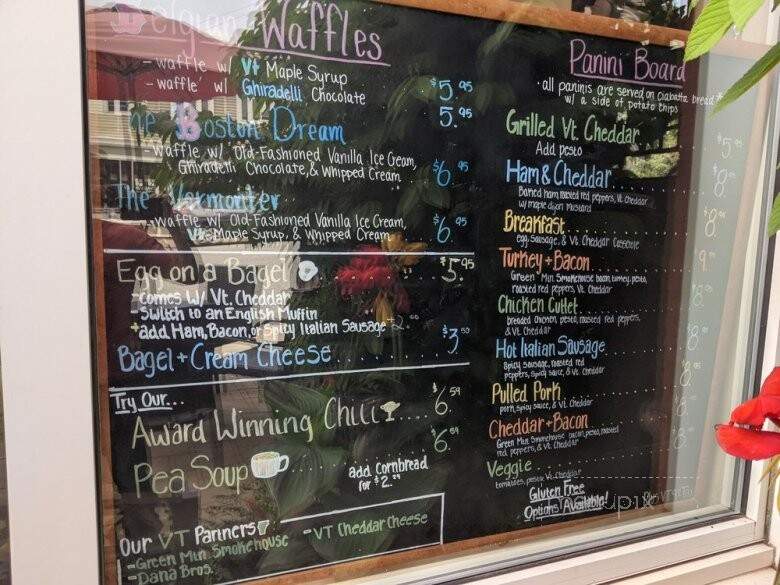 Belgian Waffles
- waffle w/ Vt Maple Syrup $5.95
- waffle w/ Ghiradelli Chocolate 5.95
The Boston Dream
- waffle w/ Old-Fashioned Vanilla Ice Cream,
Ghiradelli Chocolate, & Whipped Cream $6.95
The Vermonter
- waffle w/ Old-Fashioned Vanilla Ice Cream,
Vt Maple Syrup, & Whipped Cream $6.95
Egg on a Bagel $5.95
- comes w/ Vt. Cheddar
- Switch to an English Muffin
+ add Ham, Bacon, or Spicy Italian Sausage + 2.
Bagel + Cream Cheese $3.50
Try Our...
Award Winning Chili $6.59
Pea Soup $6.59
add Cornbread
for $2.
Our VT Partners
- Green Mtn. Smokehouse
- VT Cheddar Cheese
- Dana Bros.
Panini Board
• all paninis are served on ciabatta bread*
w/ a side of potato chips
Grilled Vt. Cheddar $5.
Add pesto
Ham & Cheddar $8.
Baked ham, roasted red peppers, Vt. Cheddar
w/ maple dijon mustard
Breakfast $8.
egg, sausage, & Vt. Cheddar
Turkey + Bacon 9.
Green Mtn Smokehouse bacon, turkey, pesto,
roasted red peppers, Vt. Cheddar
Chicken Cutlet $8.
breaded chicken, pesto, roasted red peppers,
& Vt. Cheddar
Hot Italian Sausage $8.
Spicy sausage, roasted red
peppers, spicy sauce, & Vt. Cheddar
Pulled Pork $8.
pork, spicy sauce, & Vt. Cheddar
Cheddar + Bacon $8.
Green Mtn Smokehouse bacon, pesto, roasted
red peppers, & Vt. Cheddar
Veggie
tomatoes, pesto, Vt. Cheddar
Gluten Free
Options Available!